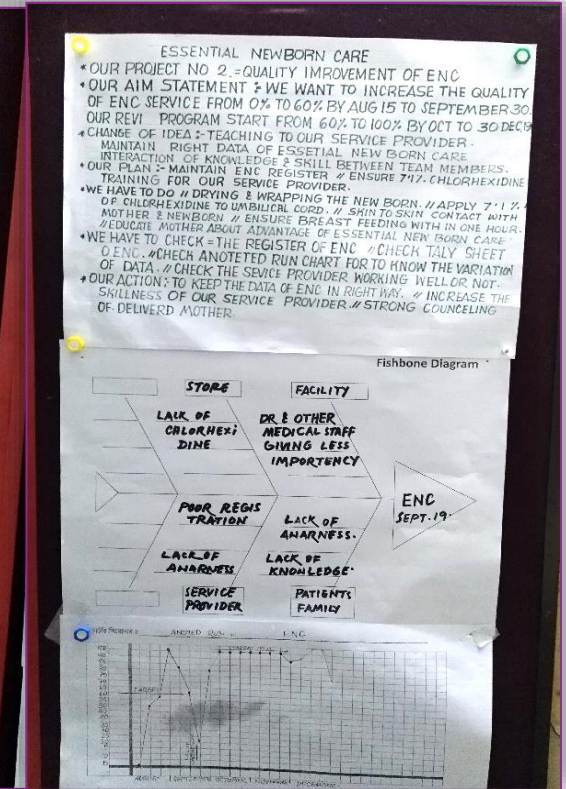 ESSENTIAL NEWBORN CARE
* OUR PROJECT NO 2.=QUALITY IMROVEMENT OF ENC
* OUR AIM STATEMENT :- WE WANT TO INCREASE THE QUALITY
OF ENC SERVICE FROM 0% TO 60% BY AUG 15 TO SEPTEMBER 30.
OUR REVI PROGRAM START FROM 60% TO 100% BY OCT TO 30 DEC 19
* CHANGE OF IDEA :- TEACHING TO OUR SERVICE PROVIDER.
MAINTAIN RIGHT DATA OF ESSETIAL NEW BORN CARE
INTERACTION OF KNOWLEDGE & SKILL BETWEEN TEAM MEMBERS.
* OUR PLAN :- MAINTAIN ENC REGISTER // ENSURE 7.1% CHLORHEXIDINE
TRAINING FOR OUR SERVICE PROVIDER.
* WE HAVE TO DO // DRYING & WRAPPING THE NEW BORN. // APPLY 7.1%
OF CHLORHEXIDINE TO UMBILICAL CORD. // SKIN TO SKIN CONTACT WITH
MOTHER & NEWBORN // ENSURE BREAST FEEDING WITH IN ONE HOUR.
// EDUCATE MOTHER ABOUT ADVANTAGE OF ESSENTIAL NEW BORN CARE
* WE HAVE TO CHECK = THE REGISTER OF ENC // CHECK TALY SHEET
O ENC. // CHECK ANOTETED RUN CHART FOR TO KNOW THE VARIATION
OF DATA. // CHECK THE SEVICE PROVIDER WORKING WELL OR NOT.
* OUR ACTION :- TO KEEP THE DATA OF ENC IN RIGHT WAY. // INCREASE THE
SKILLNESS OF OUR SERVICE PROVIDER // STRONG COUNCELING
OF DELIVERD MOTHER.
Fishbone Diagram
STORE
FACILITY
LACK OF
CHLORHEXI
DINE
DR & OTHER
MEDICAL STAFF
GIVING LESS
IMPORTENCY
ENC
SEPT.19.
POOR REGIS
TRATION
LACK OF
ANARNESS.
LACK OF
ANARNESS
LACK OF
KNOWLEDGE.
SERVICE
PROVIDER
PATIENTS
FAMILY
ENC
TARGET